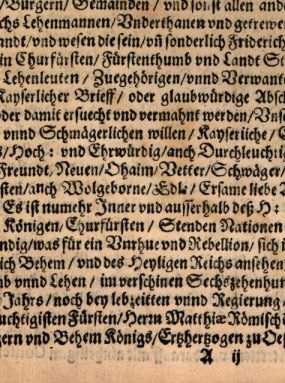 /Bürgern/ Gemainden / vnd sonst allen ande
chs Lehenmannen/ Vnderthanen vnd getrewe
andt/vnd wesen die sein/vñ sonderlich Friderich
in Churfürsten/ Fürstenthumb vnd Landt St
Lehenleuten / Zuegehörigen/vnnd Verwante
Kayserlicher Brieff/ oder glaubwürdige Absc
der damit ersuecht vnd vermahnt werden/Vnse
vnnd Schwägerlichen willen / Kayserliche / E
s/Hoch: vnd Ehrwürdig/anch Durchleuchtig
Freundt, Neuen/Ohaim/Vetter/Schwäger/
sten/anch Wolgeborne/Edle / Ersame liebe A
Es ist numehr Inner vnd ausserhalb deß H:
Königen/ Churfürsten / Stenden Nationen
ndig/was für ein Vnrhue vnd Rebellion/ sich i
ich Behem/ vnd des Heyligen Reichs ansehen
mb vnnd Lehen / im verschinen Sechszehenhun
Jahrs / noch bey lebzeitten vnnd Regierung/
uchtigisten Fürsten/Herrn Matthiæ Römisch
gern vnd Behem Königs/ Ertzhertzogen zu Oe
A ij